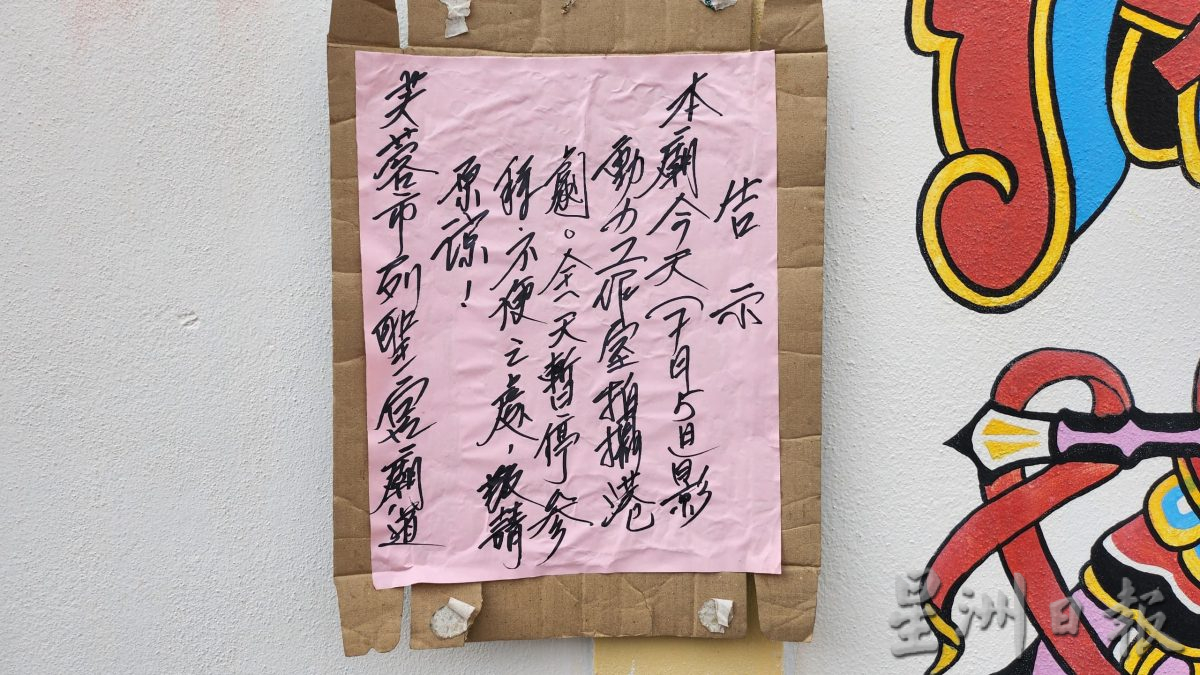 告示
本廟今天（7月5日影
動力工作室拍攝港
劇。全天暫停參
拜.不便之處，敬請
原諒！
芙蓉市列聖宮廟
星洲日報